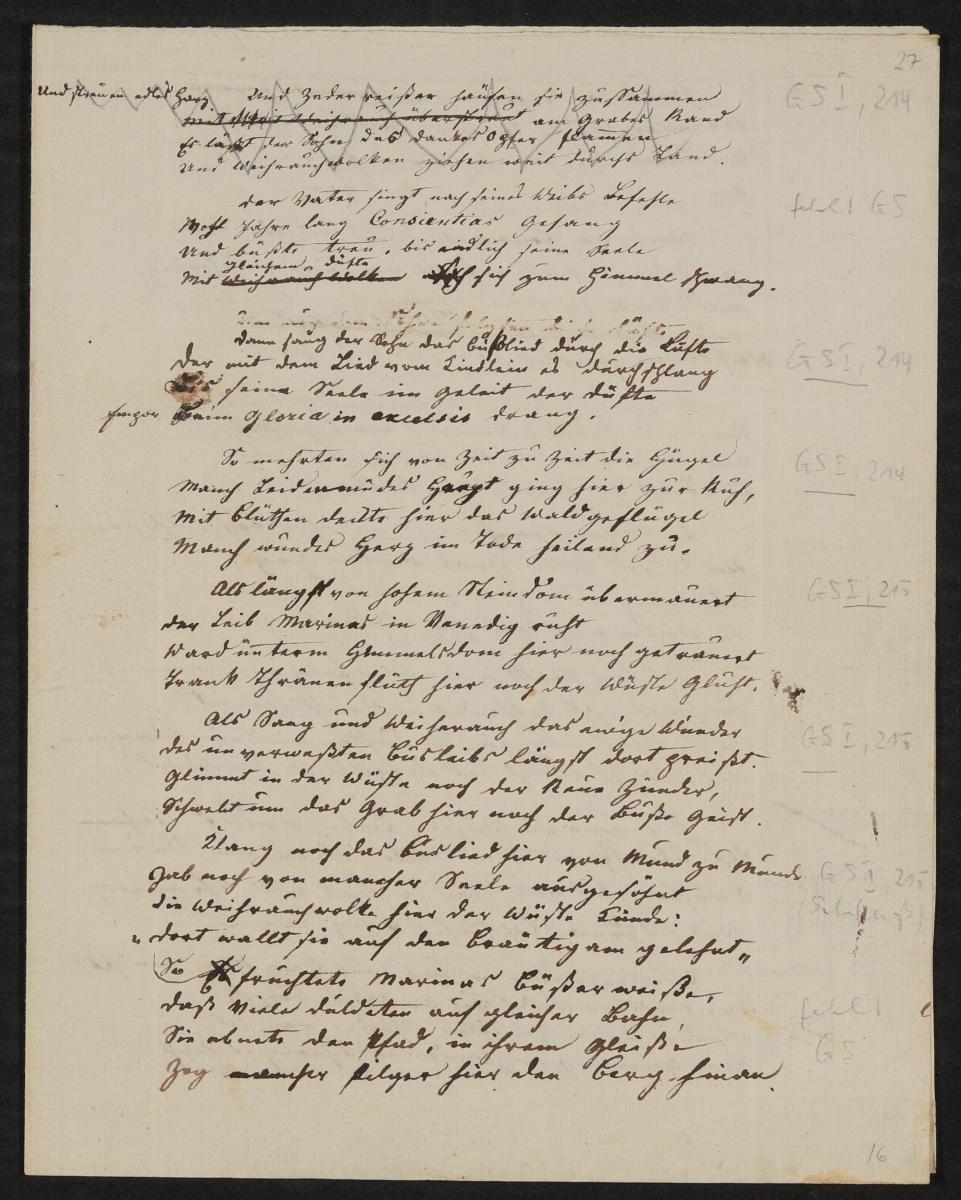 27
Und Zederreißer häufen sie zusammen
Und streuen edles Harz
Mit Weihrauch überstreut am Grabes Rand
Es läßt der Sohn des Dankes Opfer flammen
Und Weihrauchwolken ziehen weit durchs Land.
GS I, 214
Der Vater singt nach seines Weibs Befehle
Jahre lang Consientias Gesang
Und büßte treu, bis endlich seine Seele
gleichem Düfte
Mit Weihrauch Wolken sich zum Himmel schwang.
fehlt GS
Dann sang der Sohn das Bußlied durch die Lüfte
Der mit dem Lied vom Kindlein es durchschlang
Bis seine Seele im Geleit der Düfte
Empor Beim Gloria in excelsis drang.
GS I, 214
So mehrten sich von Zeit zu Zeit die Hügel
Manch Leidermüdes Haupt ging hier zur Ruh,
Mit Blüthen deckte hier das Waldgeflügel
Manch wundes Herz im Tode heilend zu.
GS I, 214
Als längst von hohem Steindom übermauert
Der Leib Marinas in Venedig ruht
Ward unterm Himmelsdom hier noch getrauert
Trank Thränenfluth hier noch der Wüste Gluht.
GS I, 215
Als Sang und Weiherauch das ewige Wunder
Des unverweßten Busleibs längst dort preißt.
Glimmt in der Wüste noch der Reue Zunder,
Schwebt um das Grab hier noch der Buße Geist.
GS I, 215
Klang noch das Buslied hier von Mund zu Munde
Gab noch von mancher Seele ausgesöhnt
Die Weihrauchwolke hier der Wüste Kunde:
„Dort wallt sie auf den Bräutigam gelehnt„
GS I, 215
So Es fruchtete Marinas Büßerweiße,
Daß Viele duldeten auf gleicher Bahn,
Sie ebnete den Pfad, in ihrem Gleiße
Zog mancher Pilger hier den Berg hinan.
fehlt
GS
16